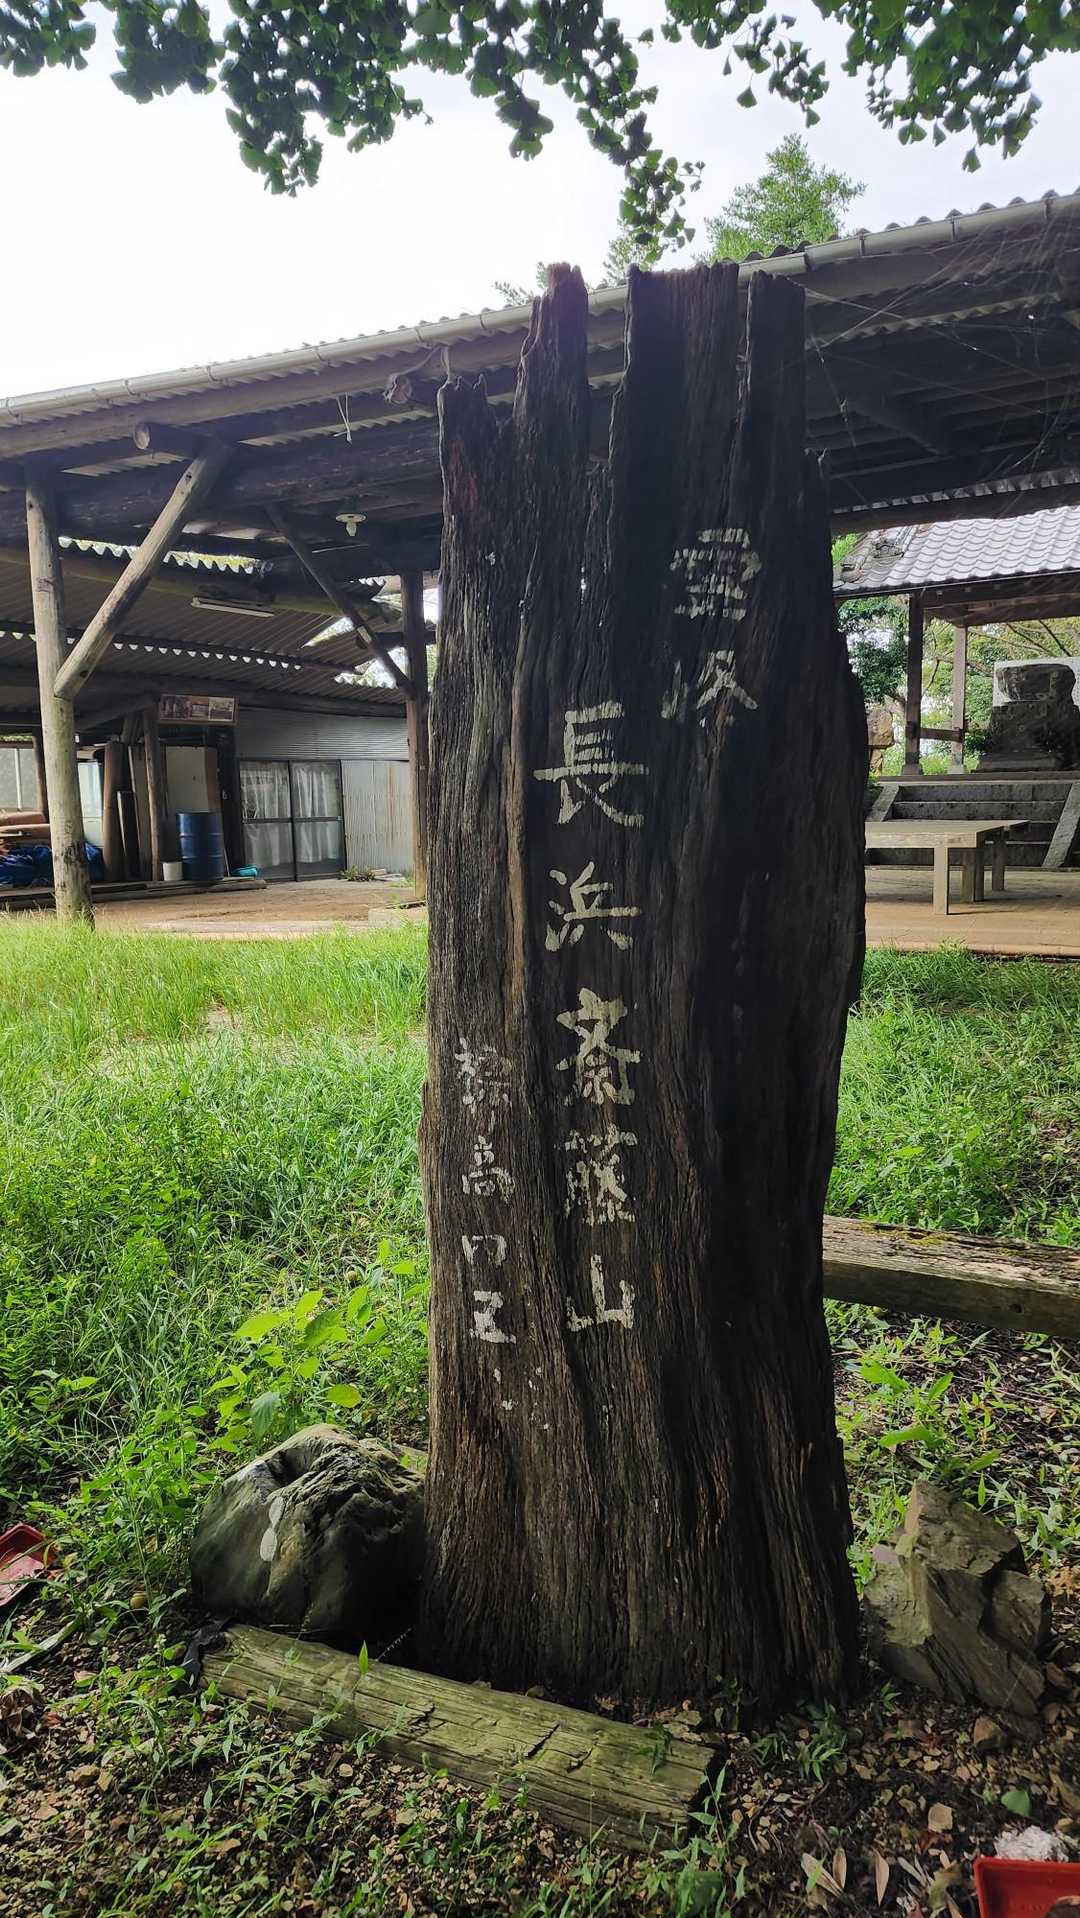 霊峰
長浜斎藤山
標高四五